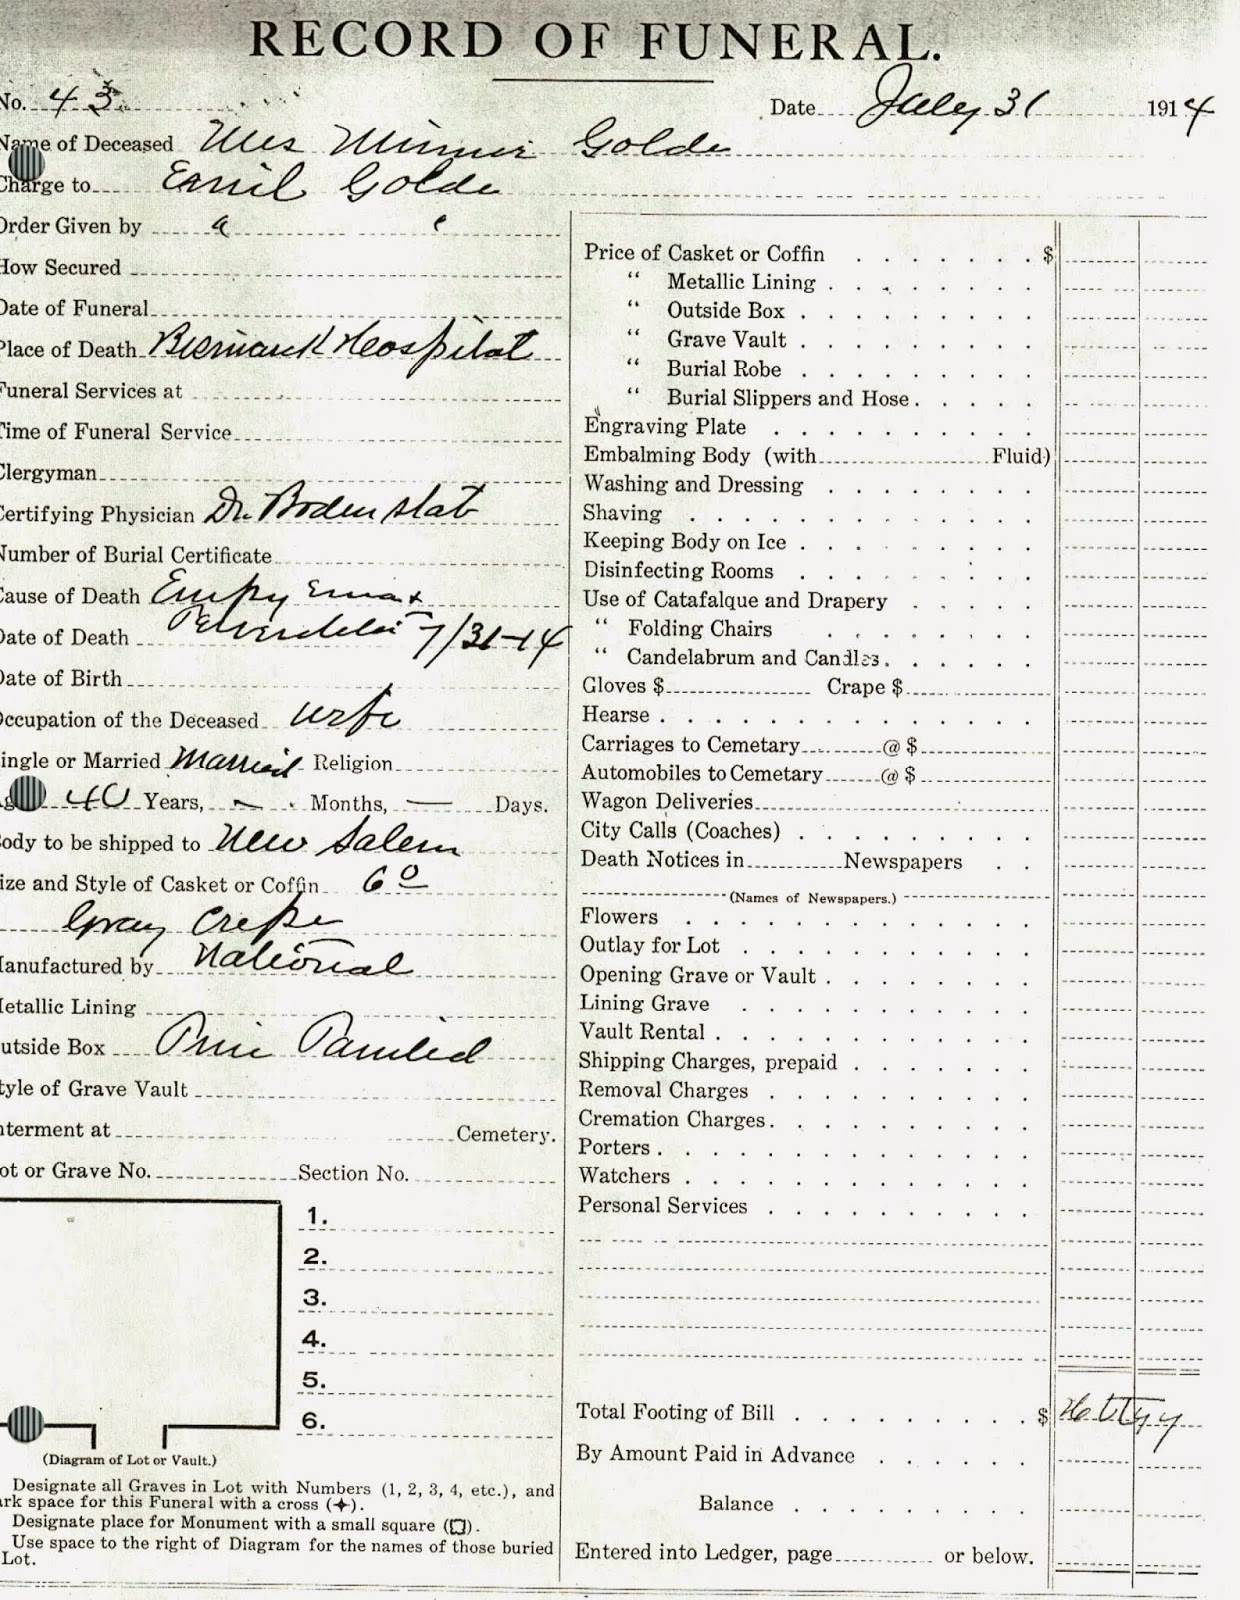 RECORD OF FUNERAL.
No. 43 Date July 31 1914
Name of Deceased Mrs Minnie Golde
Charge to Emil Golde
Order Given by
How Secured
Date of Funeral
Place of Death Bismarck Hospital
Funeral Services at
Time of Funeral Service
Clergyman
Certifying Physician Dr. Bodenstab
Number of Burial Certificate
Cause of Death Empyema &
Date of Death 7/31-14
Date of Birth
Occupation of the Deceased wife
ingle or Married Married Religion
40 Years, — Months, — Days.
ody to be shipped to New Salem
ize and Style of Casket or Coffin 6 0
Gray Crepe
anufactured by National
etallic Lining
utside Box Pine
tyle of Grave Vault
nterment at Cemetery.
ot or Grave No. Section No.
1.
2.
3.
4.
5.
6.
(Diagram of Lot or Vault.)
Designate all Graves in Lot with Numbers (1, 2, 3, 4, etc.), and
ark space for this Funeral with a cross (✦).
Designate place for Monument with a small square (□).
Use space to the right of Diagram for the names of those buried
Lot.
Price of Casket or Coffin $
“ Metallic Lining
“ Outside Box
“ Grave Vault
“ Burial Robe
“ Burial Slippers and Hose
Engraving Plate
Embalming Body (with Fluid)
Washing and Dressing
Shaving
Keeping Body on Ice
Disinfecting Rooms
Use of Catafalque and Drapery
“ Folding Chairs
“ Candelabrum and Candles
Gloves $ Crape $
Hearse
Carriages to Cemetary @ $
Automobiles to Cemetary @ $
Wagon Deliveries
City Calls (Coaches)
Death Notices in Newspapers
(Names of Newspapers.)
Flowers
Outlay for Lot
Opening Grave or Vault
Lining Grave
Vault Rental
Shipping Charges, prepaid
Removal Charges
Cremation Charges
Porters
Watchers
Personal Services
Total Footing of Bill $
By Amount Paid in Advance
Balance
Entered into Ledger, page or below.